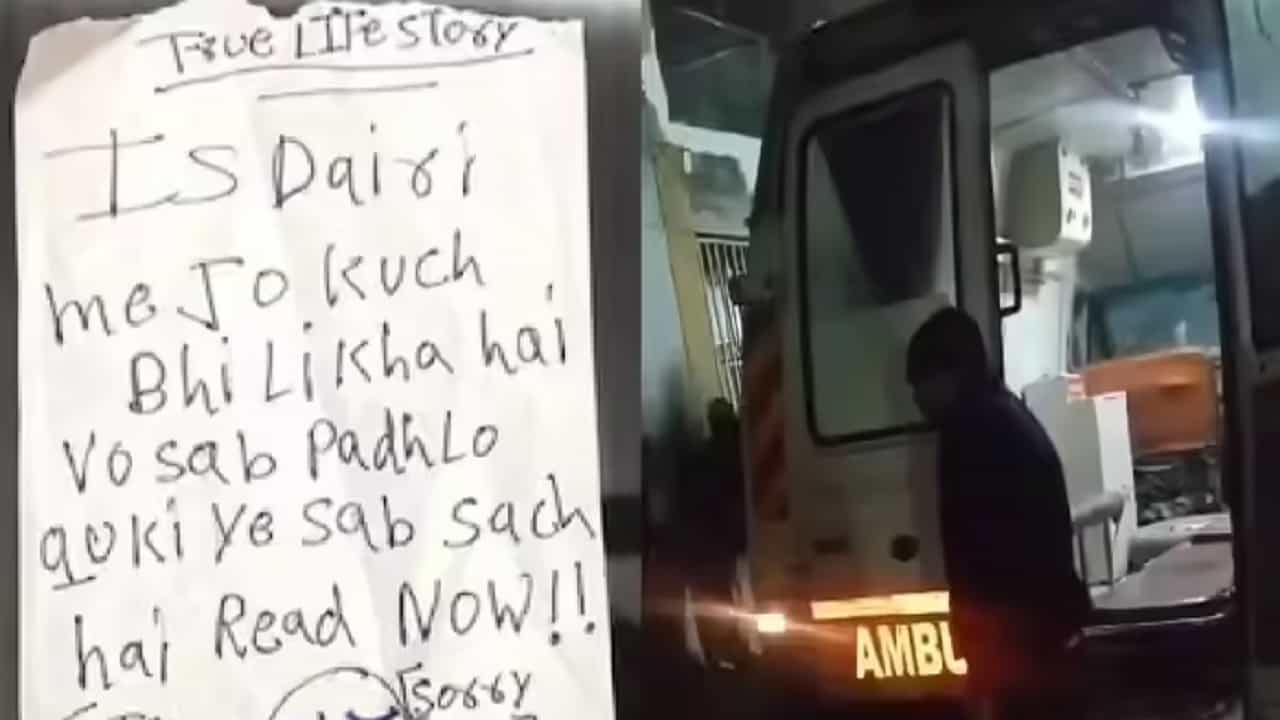 True LIfe story
Is Dairi
me Jo kuch
Bhi Likha hai
Vo sab PadhLo
quki ye sab sach
hai Read NOW!!
Sorry
AMBU